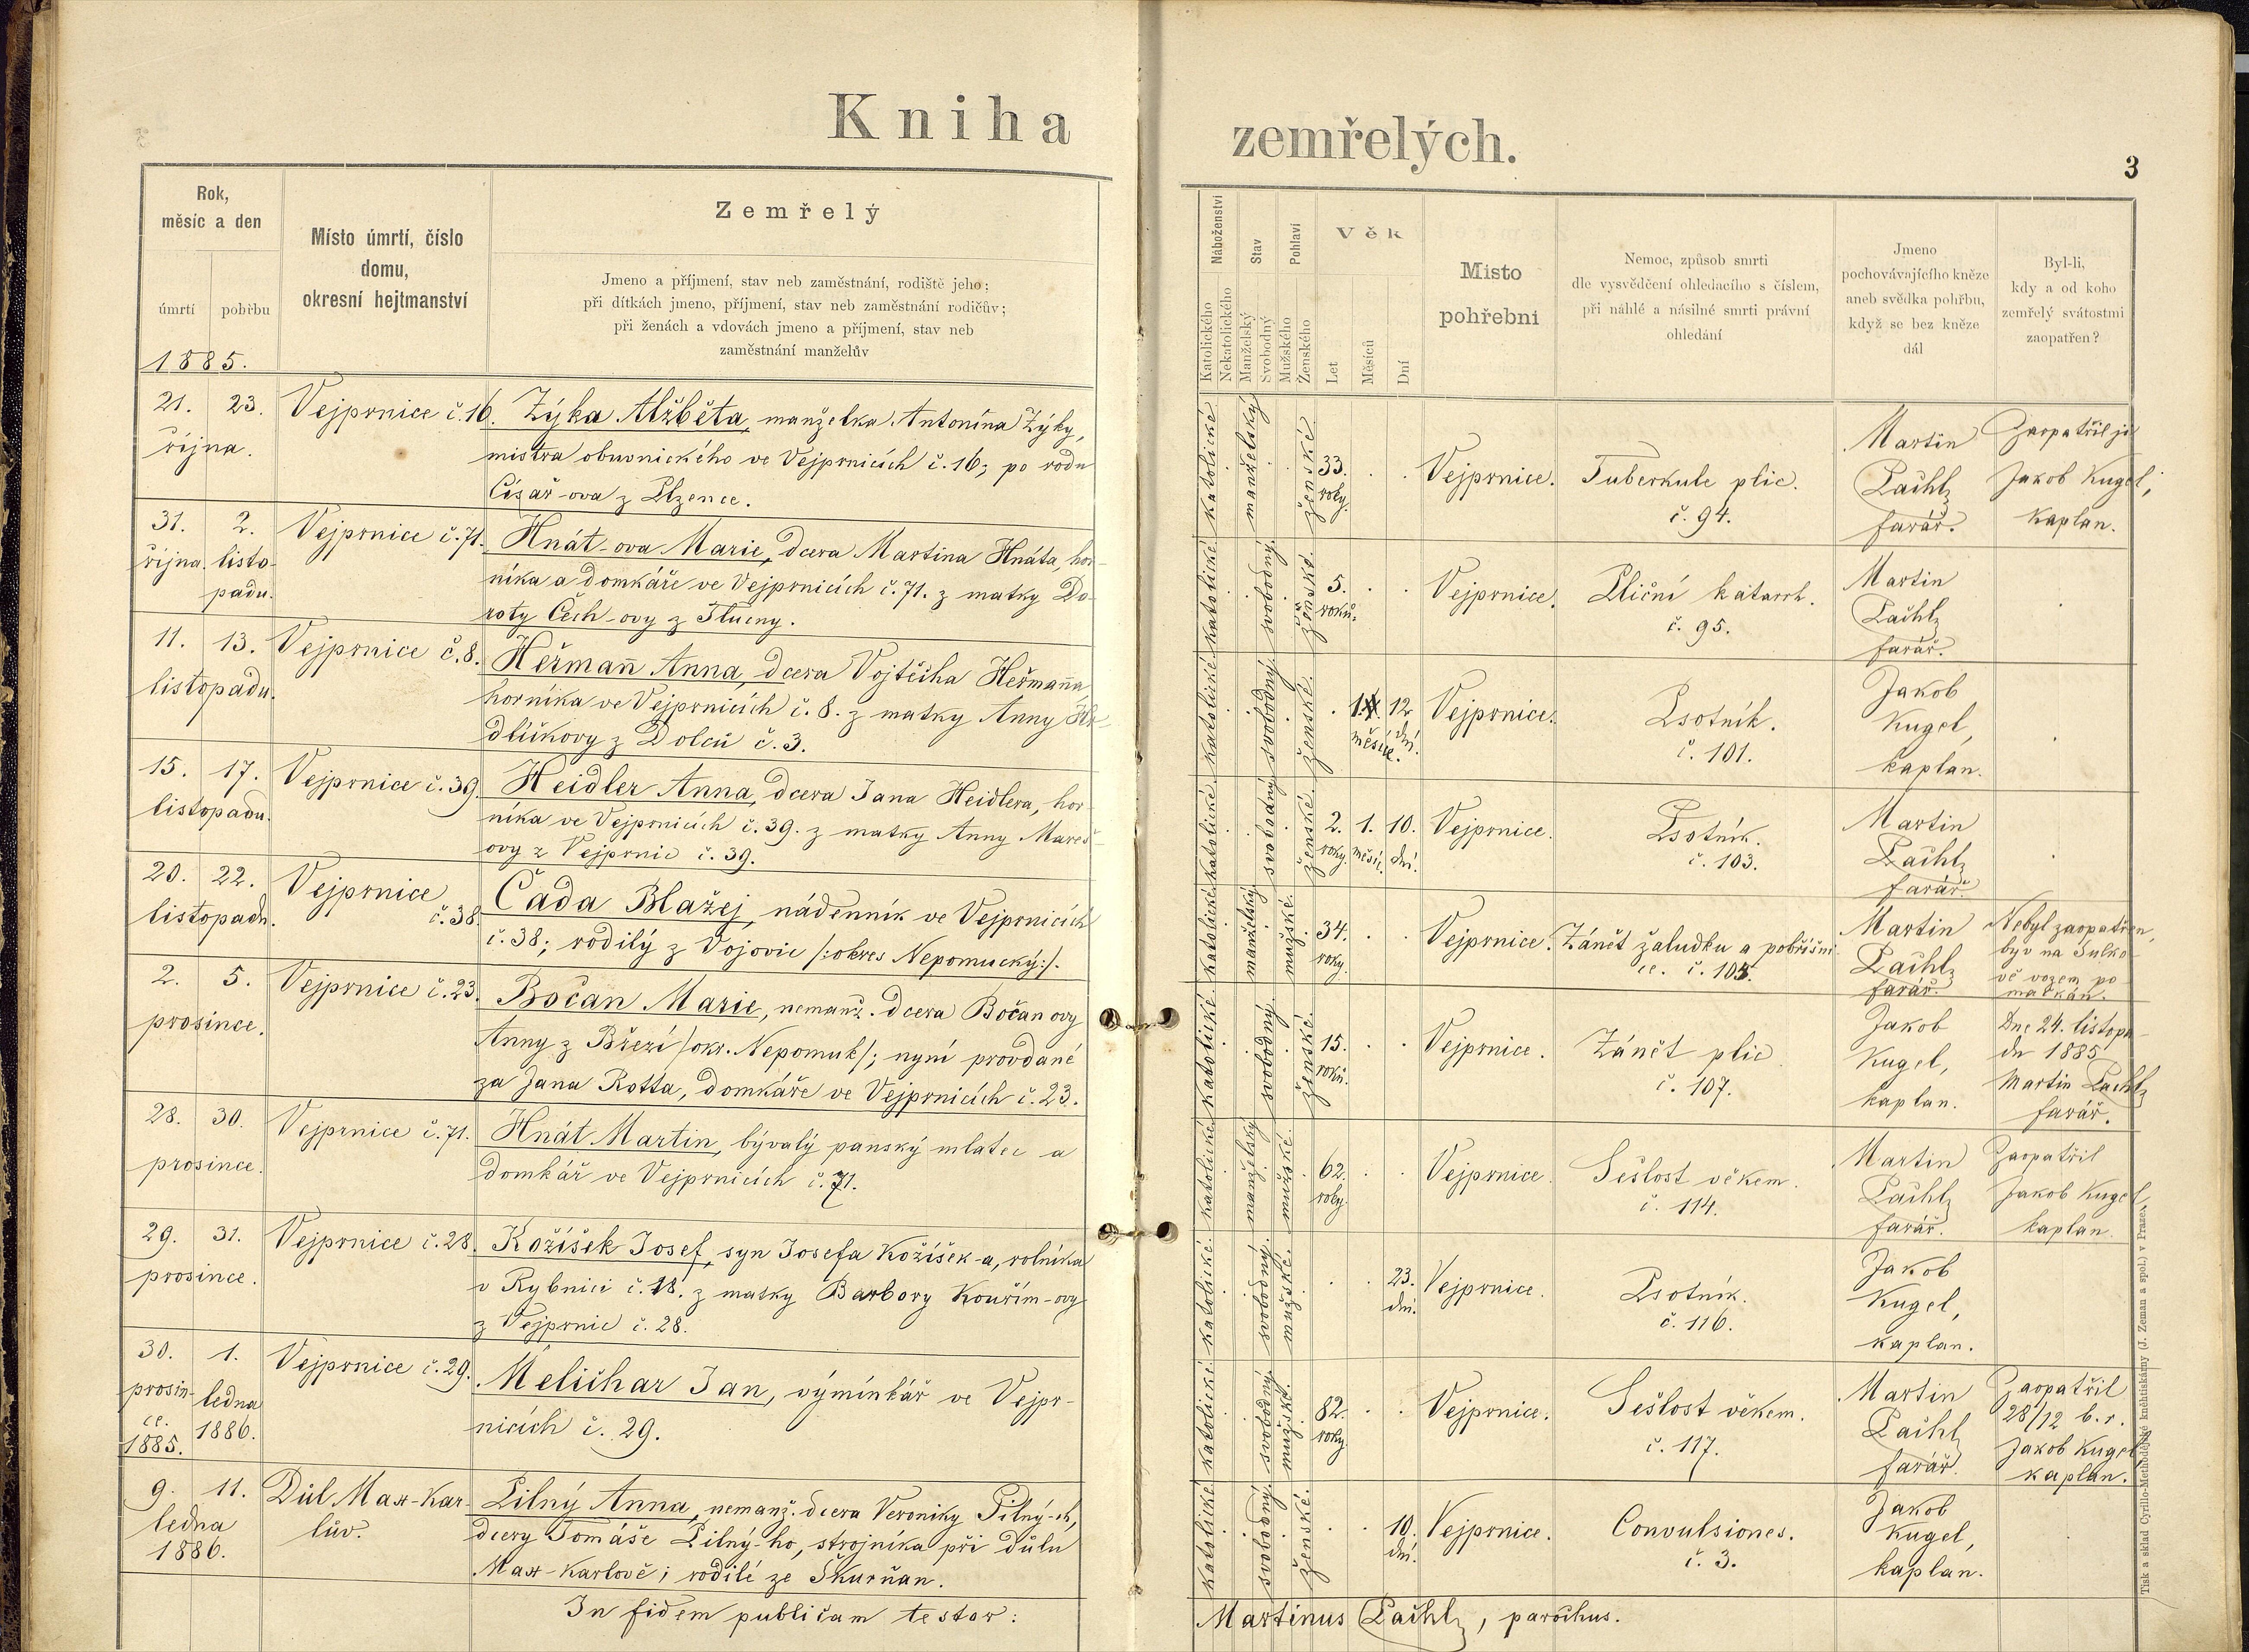 Kniha zemřelých.
3
Rok,
měsíc a den
úmrtí
pohřbu
Místo úmrtí, číslo
domu,
okresní hejtmanství
Zemřelý
Jmeno a příjmení, stav neb zaměstnání, rodiště jeho;
při dítkách jmeno, příjmení, stav neb zaměstnání rodičův;
při ženách a vdovách jmeno a příjmení, stav neb
zaměstnání manželův
Náboženství
Katolického
Nekatolického
Stav
Manželský
Svobodný
Pohlaví
Mužského
Ženského
Věk
Let
Měsíců
Dní
Místo
pohřební
Nemoc, způsob smrti
dle vysvědčení ohledacího s číslem,
při náhlé a násilné smrti právní
ohledání
Jmeno
pochovávajícího kněze
aneb svědka pohřbu,
když se bez kněze
dál
Byl-li,
kdy a od koho
zemřelý svátostmi
zaopatřen?
1885.
21. 23.
října.
Vejprnice č. 16.
Zýka Alžběta, manželka Antonína Zýky,
mistra obuvnického ve Vejprnicích č. 16; po rodu
Císař-ova z Plzence.
katolické
manželský
ženské
33.
roky.
Vejprnice.
Tuberkule plic.
č. 94.
Martin
Pachl
farář.
Zaopatřil ji
Jakob Kugel,
kaplan.
31. 2.
října. listo-
padu.
Vejprnice č. 71.
Hnát-ova Marie, dcera Martina Hnáta, hor-
níka a domkáře ve Vejprnicích č. 71. z matky Do-
roty Čech-ovy z Tlucny.
katolické
svobodný.
ženské.
5.
roků.
Vejprnice.
Pliční katarrh.
č. 95.
Martin
Pachl
farář.
11. 13.
listopadu.
Vejprnice č. 8.
Heřmann Anna, dcera Vojtěcha Heřmanna,
horníka ve Vejprnicích č. 8. z matky Anny Hr-
dličkovy z Dolců č. 3.
katolické
svobodný.
ženské.
1. 12
měsíc. dní.
Vejprnice.
Psotník.
č. 101.
Jakob
Kugel,
kaplan.
15. 17.
listopadu.
Vejprnice č. 39.
Heidler Anna, dcera Jana Heidlera, hor-
níka ve Vejprnicích č. 39. z matky Anny Mareš-
ovy z Vejprnic č. 39.
katolické.
svobodný
ženské.
2. 1. 10.
roky. měsíc. dní.
Vejprnice.
Psotník.
č. 103.
Martin
Pachl
farář.
20. 22.
listopadu.
Vejprnice
č. 38.
Čada Blažej, nádenník ve Vejprnicích
č. 38; rodilý z Vojovic /:okres Nepomucký:/.
katolické
manželský
mužské.
34.
roky.
Vejprnice.
Zánět žaludku a pobřišni-
ce. č. 105.
Martin
Pachl
farář.
Nebyl zaopatřen,
byv na Sulko-
vě vozem po
mačkán.
2. 5.
prosince.
Vejprnice č. 23.
Bočan Marie, nemanž. dcera Bočanovy
Anny z Březí /okr. Nepomuk/; nyní provdané
za Jana Rotta, domkáře ve Vejprnicích č. 23.
katolické.
svobodný.
ženské.
15.
roků.
Vejprnice.
Zánět plic
č. 107.
Jakob
Kugel,
kaplan.
Dne 24. listopa-
du 1885
Martin Pachl
farář.
28. 30.
prosince.
Vejprnice č. 71.
Hnát Martin, bývalý panský mlatec a
domkář ve Vejprnicích č. 71.
katolické
manželský
mužské.
62.
roky.
Vejprnice.
Sešlost věkem.
č. 114.
Martin
Pachl
farář.
Zaopatřil
Jakob Kugel,
kaplan.
29. 31.
prosince.
Vejprnice č. 28.
Kožíšek Josef, syn Josefa Kožíšek-a, rolníka
v Rybnici č. 18. z matky Barbory Kouřím-ovy
z Vejprnic č. 28.
katolické.
svobodný.
mužské.
23.
dní.
Vejprnice.
Psotník.
č. 116.
Jakob
Kugel,
kaplan.
30. 1.
prosin- ledna
ce. 1886.
1885.
Vejprnice č. 29.
Melichar Jan, výminkář ve Vejpr-
nicích č. 29.
katolické
svobodný.
mužské.
82.
roky.
Vejprnice.
Sešlost věkem.
č. 117.
Martin
Pachl
farář.
Zaopatřil
28/12 b. r.
Jakob Kugel,
kaplan.
9. 11.
ledna
1886.
Důl Max-Kar-
lův.
Pilný Anna, nemanž. dcera Veroniky Pilný-ch,
dcery Tomáše Pilný-ho, strojníka při dolu
Max-Karlově; rodilé ze Škurňan.
katolické
svobodný.
ženské.
10.
dní.
Vejprnice.
Convulsiones.
č. 3.
Jakob
Kugel,
kaplan.
In fidem publicam testor:
Martinus Pachl, parochus.
Tisk a sklad Cyrillo-Methodějské knihtiskárny (J. Zeman a spol.) v Praze.